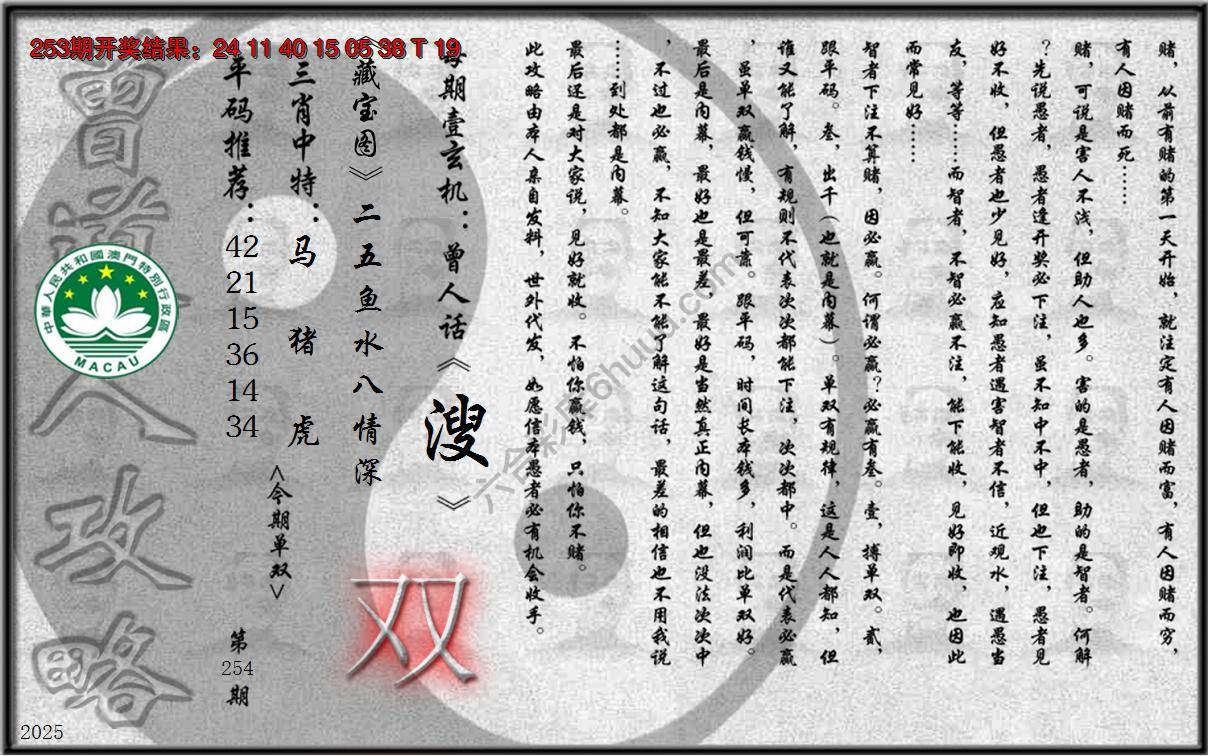 253期开奖结果：24 11 40 15 05 38 T 19
赌，从前有赌的第一天开始，就注定有人因赌而富，有人因赌而穷，
有人因赌而死……
赌，可说是害人不浅，但助人也多。害的是愚者，助的是智者。何解
？先说愚者，愚者逢开奖必下注，虽不知中不中，但也下注，愚者见
好不收，但愚者也少见好，应知愚者遇害智者不信，近观水，遇愚当
友，等等……而智者，不智必赢不注，能下能收，见好即收，也因此
而常见好……
智者下注不算赌，因必赢。何谓必赢？必赢有叁。壹，搏单双。贰，
跟平码。叁，出千（也就是内幕）。单双有规律，这是人人都知，但
谁又能了解，有规则不代表次次都能下注，次次都中。而是代表必赢
，虽单双赢钱慢，但可靠。跟平码，时间长本钱多，利润比单双好。
最后是内幕，最好也是最差，最好是当然真正内幕，但也没法次次中
，不过也必赢，不知大家能不能了解这句话，最差的相信也不用我说
……到处都是内幕。
最后还是对大家说，见好就收。不怕你赢钱，只怕你不赌。
此攻略由本人亲自发料，世外代发，如愿信本愚者必有机会收手。
每期壹玄机：曾人话《溲》
《藏宝图》二五鱼水八情深
三肖中特：马 猪 虎
<今期单双>
双
平码推荐：
42
21
15
36
14
34
第
254
期
曾道人攻略
中華人民共和國澳門特別行政區
MACAU
六合彩库6huuu.com
2025